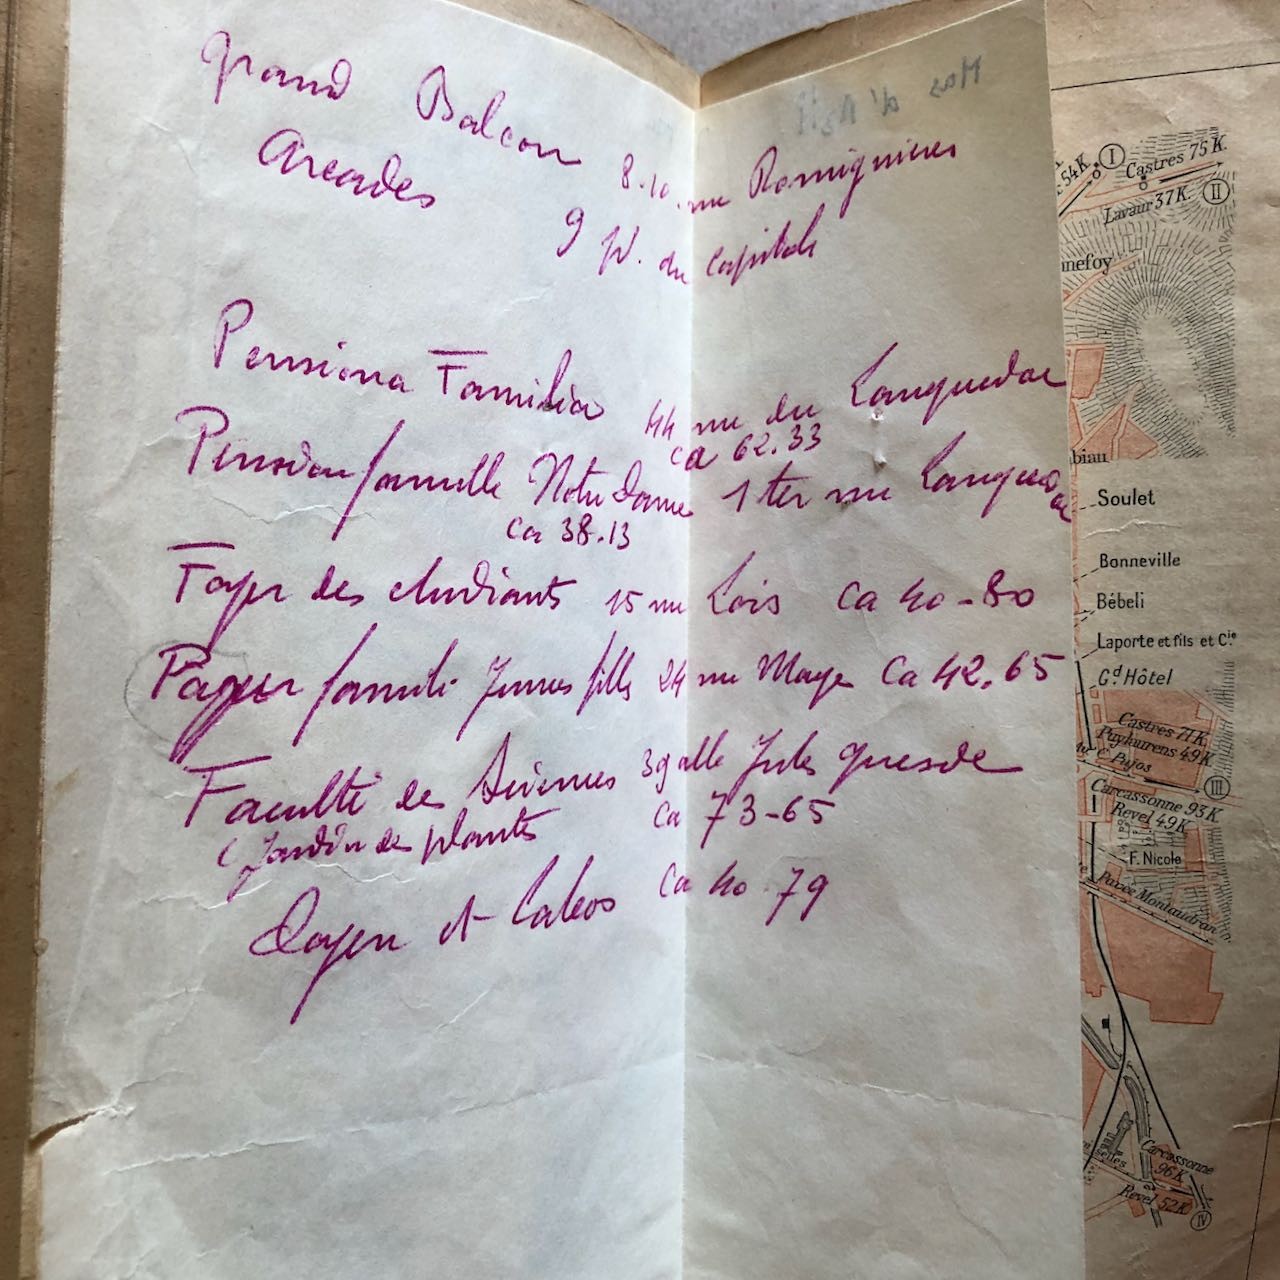 Grand Balcon 8-10 rue Romiguières
Arcades 9 pl. du Capitole
Pensiona Familia 44 rue du Languedoc
Ca 62.33
Pension famille Notre Dame 1 ter rue Languedoc
Ca 38.13
Foyer des étudiants 15 rue Lois Ca 40-80
famili Jeunes filles 24 rue Mage Ca 42.65
Faculté des Sciences 39 allé Jules Guesde
(Jardin des plantes Ca 73-65
Doyen et Ca 40.79
Mas d'Azil
54K.
I
Castres 75 K.
Lavaur 37 K.
II
nnefoy
biau
Soulet
Bonneville
Bébeli
Laporte et fils et Cie
Gd Hôtel
Castres 71 K.
Puylaurens 49 K
C. Pujos
III
Carcassonne 93 K
Revel 49 K
F. Nicole
Pavée Montaudran
Carcassonne
96 K
Revel 52 K
IV